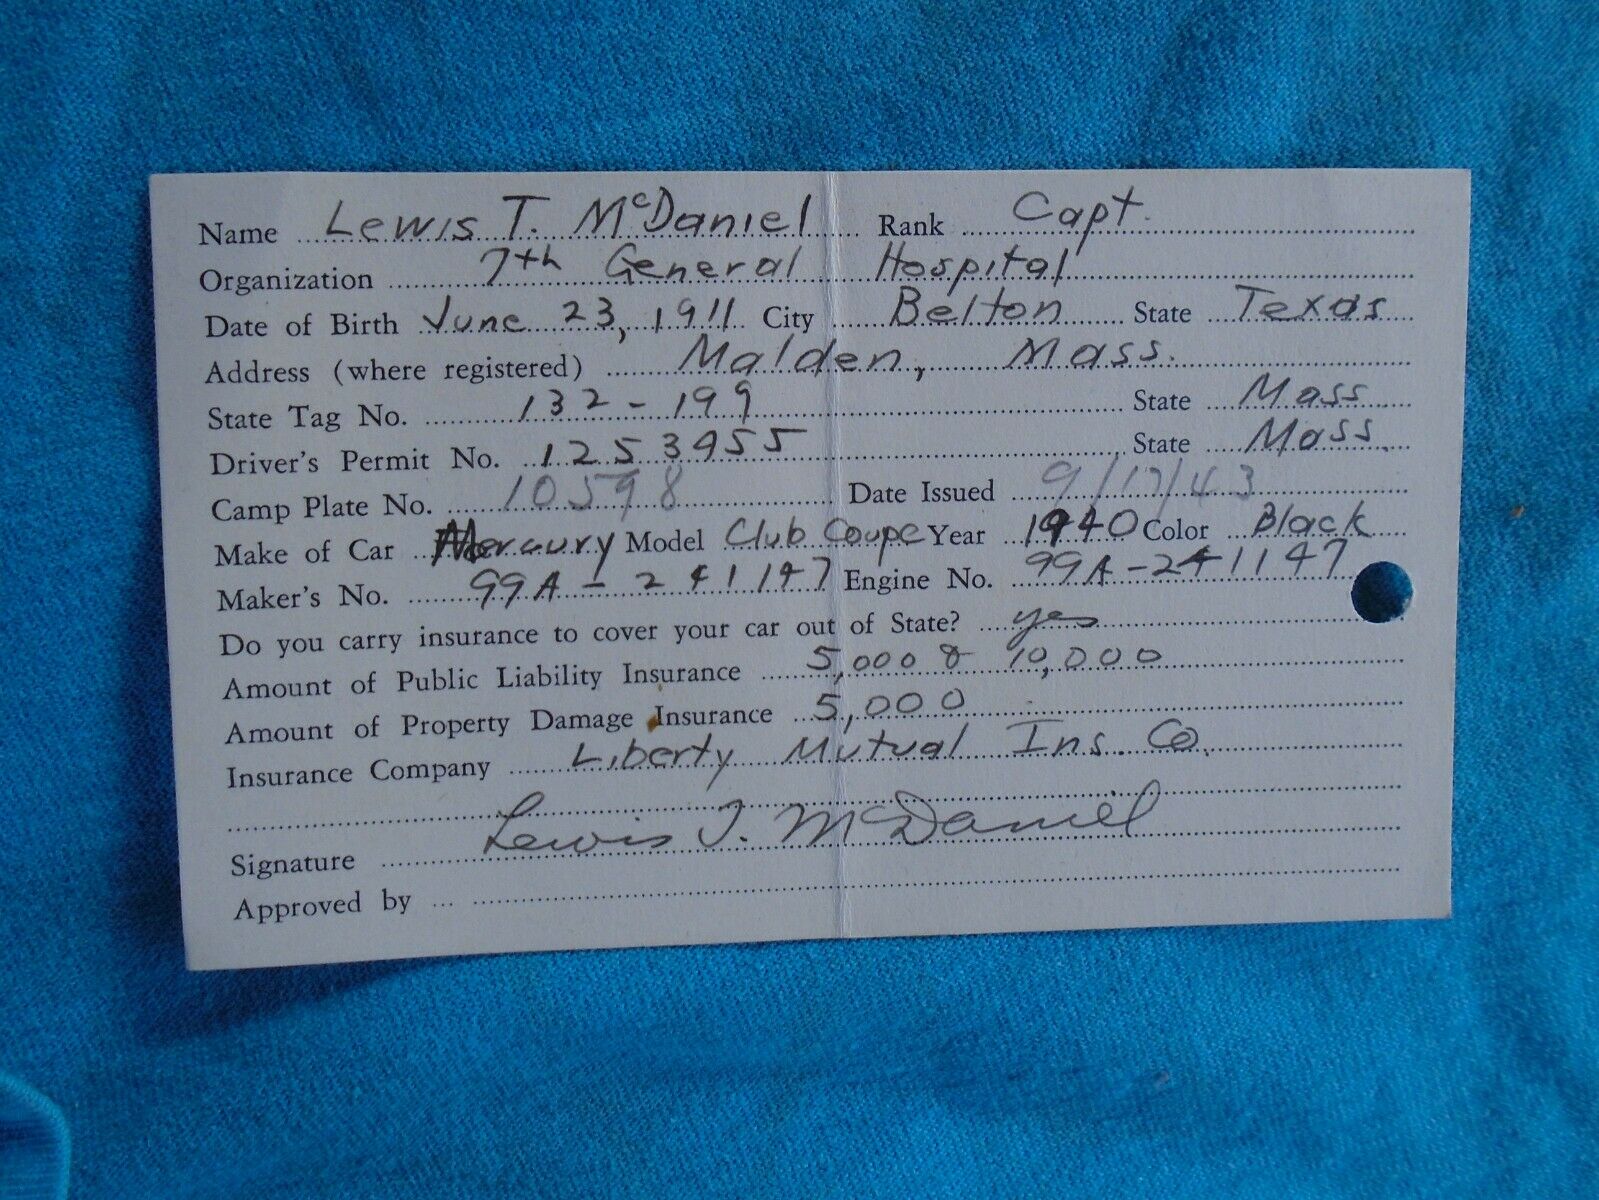 Name Lewis T. McDaniel Rank Capt.
Organization 7th General Hospital
Date of Birth June 23, 1911 City Belton State Texas
Address (where registered) Malden, Mass.
State Tag No. 132-199 State Mass
Driver's Permit No. 1253955 State Mass.
Camp Plate No. 10598 Date Issued 9/17/43
Make of Car Mercury Model Club Coupe Year 1940 Color Black
Maker's No. 99A-241147 Engine No. 99A-241147
Do you carry insurance to cover your car out of State? yes
Amount of Public Liability Insurance 5,000 & 10,000
Amount of Property Damage Insurance 5,000
Insurance Company Liberty Mutual Ins. Co.
Signature Lewis T. McDaniel
Approved by